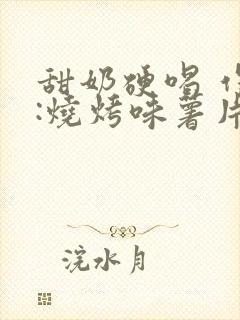 甜奶硬唱
:燒烤味薯片
浣水月